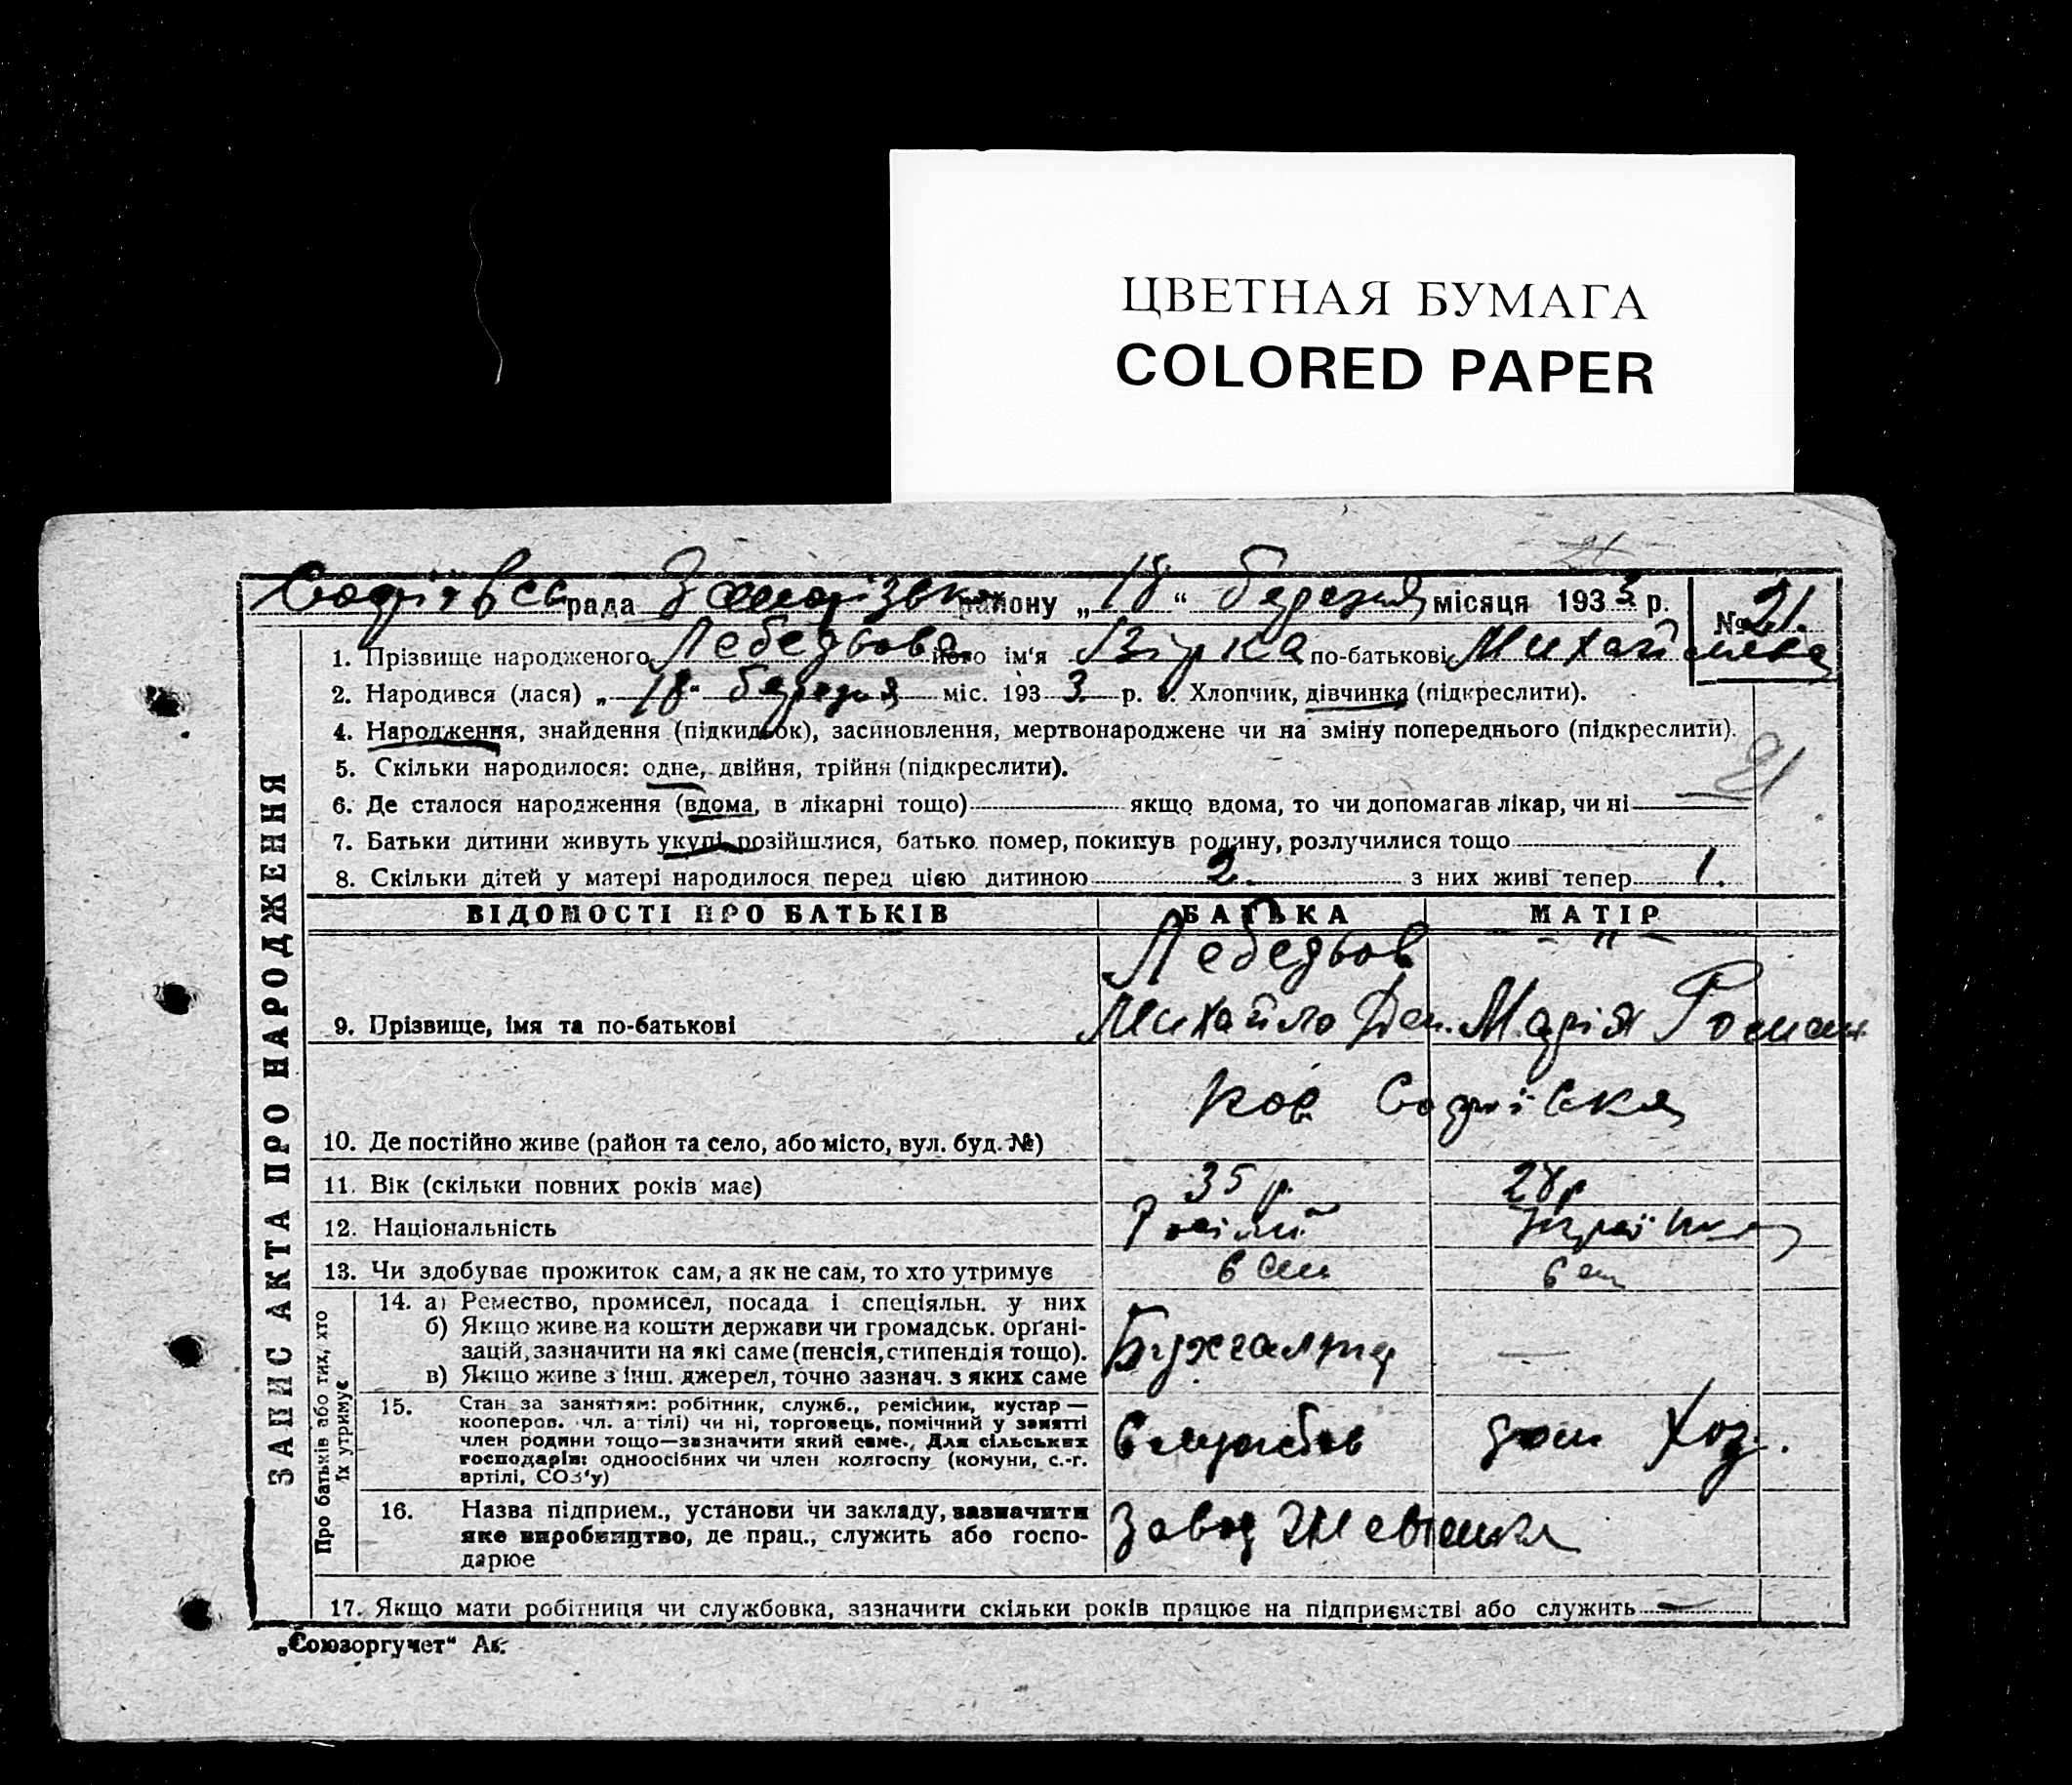 ЦВЕТНАЯ БУМАГА
COLORED PAPER
ЗАПИС АКТА ПРО НАРОДЖЕННЯ
рада району „18“ березня місяця 1933 р. № 21.
1. Прізвище народженого Лебедьова його ім'я Зірка по-батькові Михайлівна
2. Народився (лася) „18“ березня міс. 1933 р. 3. Хлопчик, дівчинка (підкреслити).
4. Народження, знайдення (підкидьок), засиновлення, мертвонароджене чи на зміну попереднього (підкреслити).
21
5. Скільки народилося: одне, двійня, трійня (підкреслити).
6. Де сталося народження (вдома, в лікарні тощо) якщо вдома, то чи допомагав лікар, чи ні
7. Батьки дитини живуть укупі, розійшлися, батько помер, покинув родину, розлучилися тощо
8. Скільки дітей у матері народилося перед цією дитиною 2. з них живі тепер 1.
ВІДОМОСТІ ПРО БАТЬКІВ БАТЬКА МАТІР
Лебедьов – " –
9. Прізвище, імя та по-батькові Михайло Марія Роман
10. Де постійно живе (район та село, або місто, вул. буд. №)
11. Вік (скільки повних років має) 35 р. 28 р
12. Національність
13. Чи здобуває прожиток сам, а як не сам, то хто утримує
Про батьків або тих, хто їх утримує
14. а) Ремество, промисел, посада і спеціяльн. у них
б) Якщо живе на кошти держави чи громадськ. органі-
зацій, зазначити на які саме (пенсія, стипендія тощо). Бухгалтер —
в) Якщо живе з інш. джерел, точно зазнач. з яких саме
15. Стан за заняттям: робітник, служб., ремісник, кустар —
кооперов. чл. артілі) чи ні, торговець, помічний у занятті
член родини тощо—зазначити який саме. Для сільських
господарів: одноосібних чи член колгоспу (комуни, с.-г.
артілі, СОЗ'у) Службов дом хоз.
16. Назва підприєм., установи чи закладу, зазначити
яке виробництво, де прац., служить або госпо-
дарює Завод
17. Якщо мати робітниця чи службовка, зазначити скільки років працює на підприємстві або служить —
„Союзоргучет“ Ак.